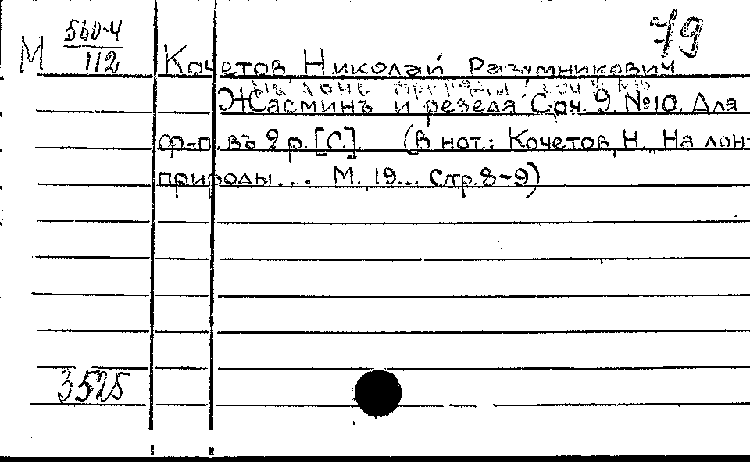 79
М 560-4/112
Кочетов, Николай Разумникович
На лоне природы
Жасминъ и резеда Соч. 9. №10. Для
ф-п. въ 2 р. [С]. (В нот.: Кочетов, Н. На лон
природы... М., 19... Стр. 8-9)
3525